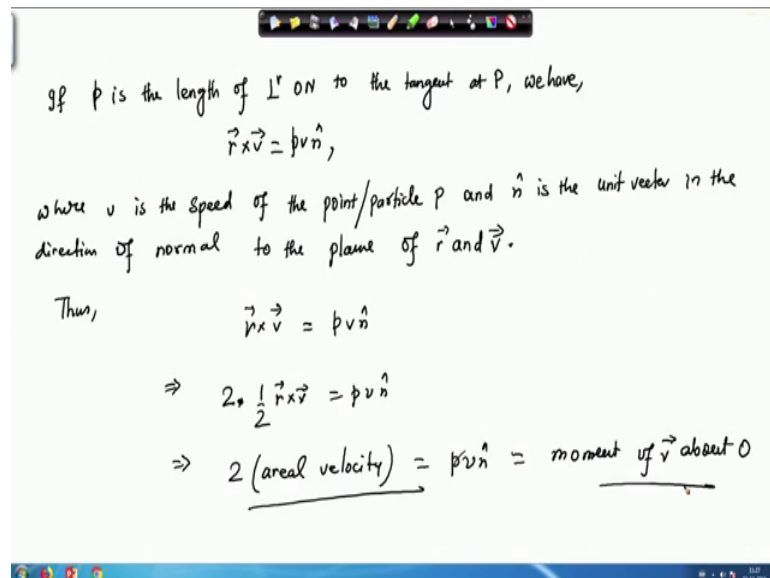 If p is the length of ⊥ʳ ON to the tangent at P, we have,
r⃗ × v⃗ = p v n̂,
where v is the speed of the point/particle P and n̂ is the unit vector in the
direction of normal to the plane of r⃗ and v⃗.
Thus,
r⃗ × v⃗ = p v n̂
⇒ 2. 1/2 r⃗ × v⃗ = p v n̂
⇒ 2 (areal velocity) = p v n̂ = moment of v⃗ about O